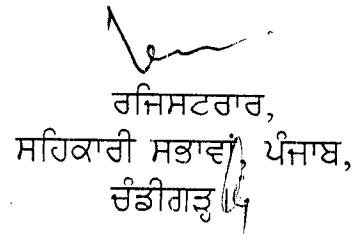 ਰਜਿਸਟਰਾਰ,
ਸਹਿਕਾਰੀ ਸਭਾਵਾਂ, ਪੰਜਾਬ,
ਚੰਡੀਗੜ੍ਹ